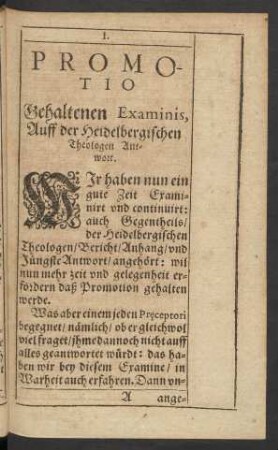 1.
PROMO-
TIO
Gehaltenen Examinis,
Auff der Heidelbergischen
Theologen Ant-
wort.
WIr haben nun ein
gute Zeit Exami-
nirt vnd continuirt:
auch Gegentheils/
der Heidelbergischen
Theologen/Bericht/Anhang/vnd
Jüngste Antwort/angehört: wil
nun mehr zeit vnd gelegenheit er-
fordern daß Promotion gehalten
werde.
Was aber einem jeden Præceptori
begegnet/nämlich/ob er gleichwol
viel fraget/jhme dannoch nicht auff
alles geantwortet würdt: das ha-
ben wir bey diesem Examine/in
Warheit auch erfahren. Dann vn-
A ange-